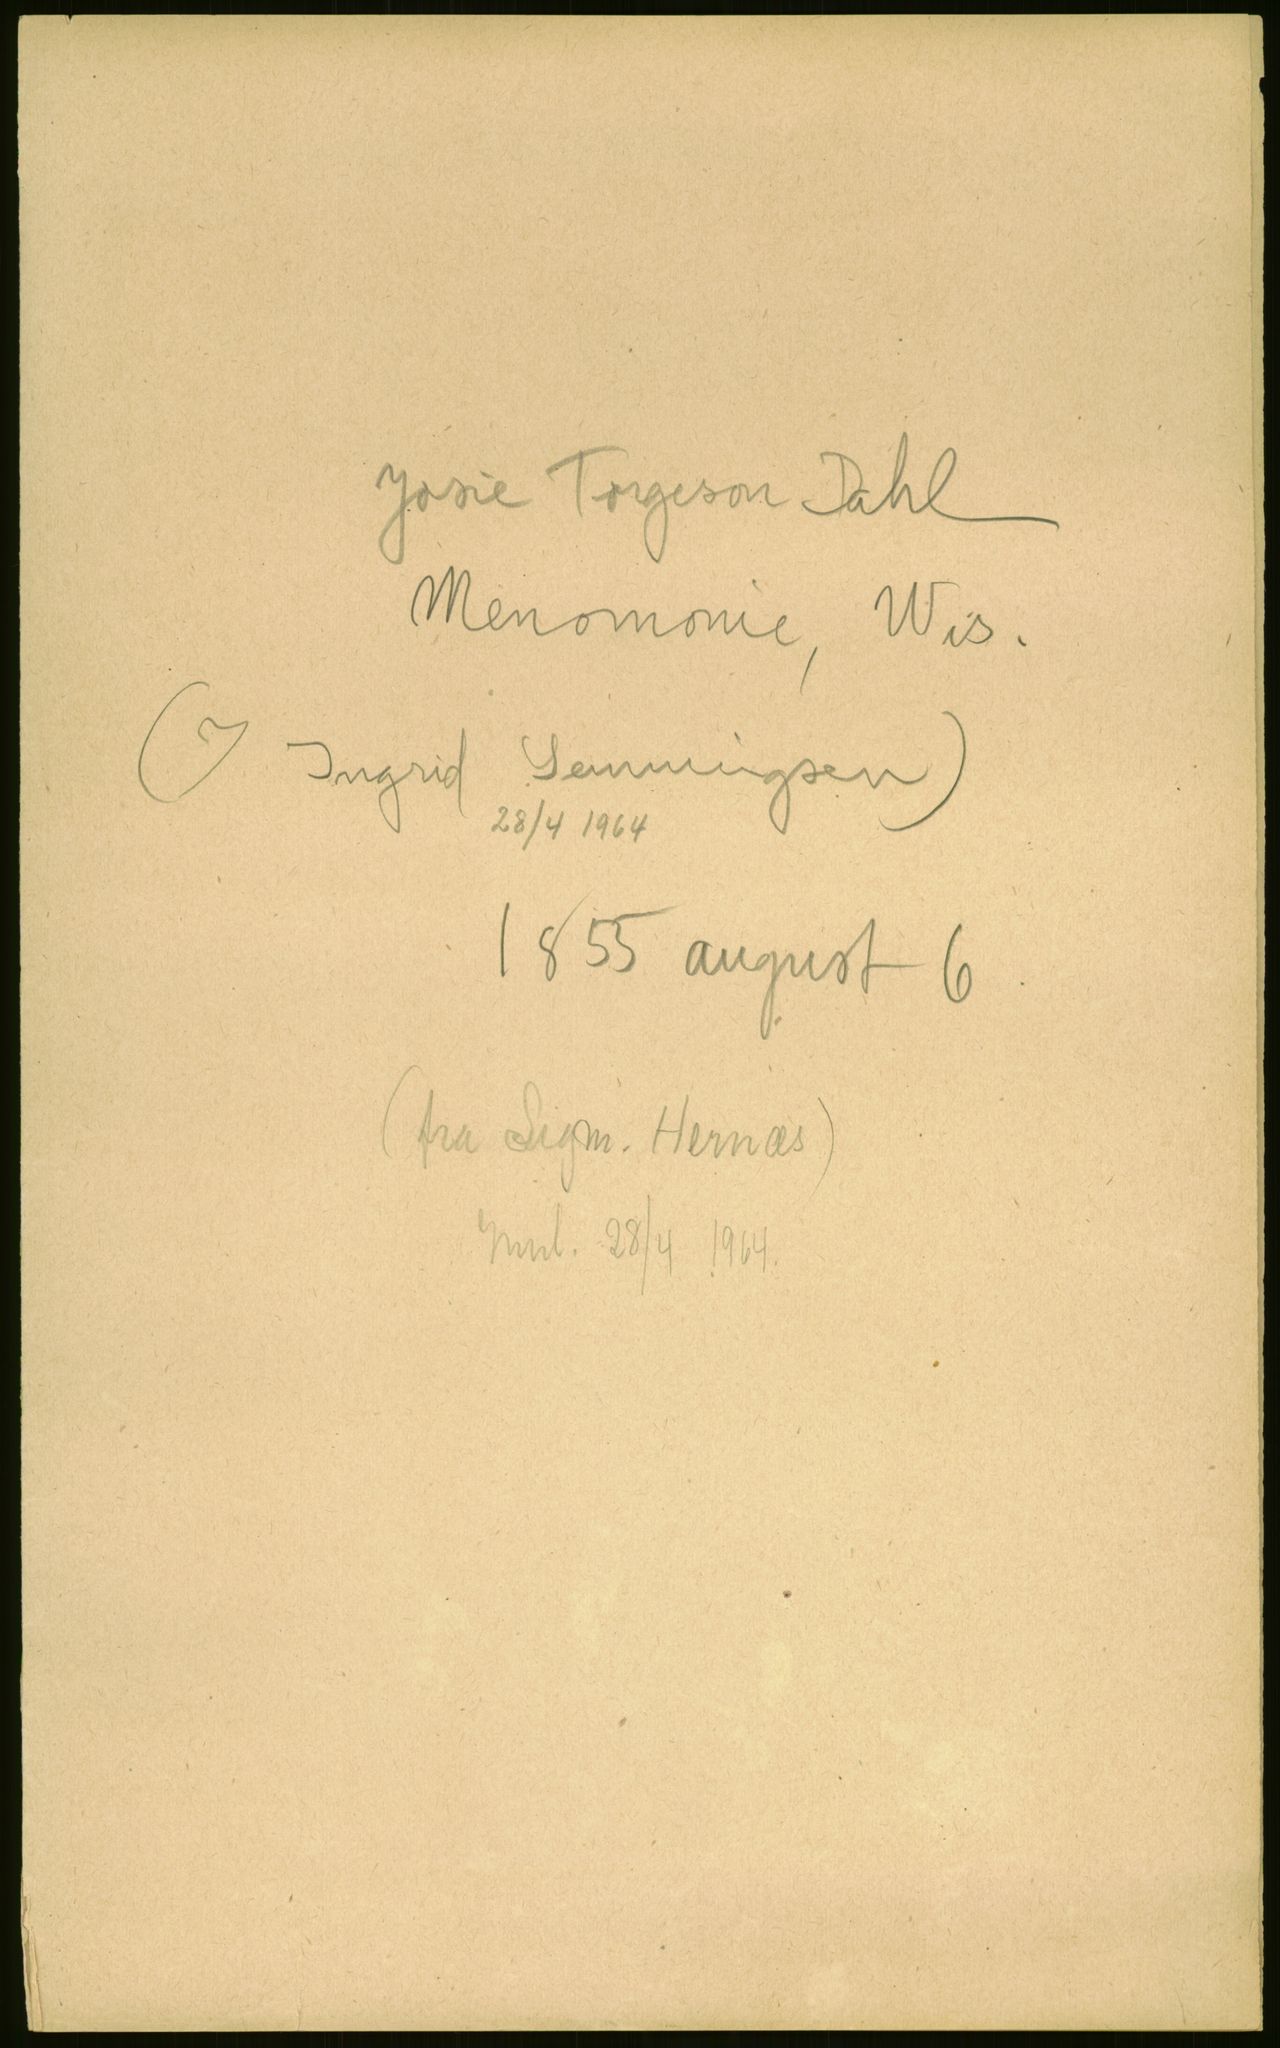 Josie Torgeson Dahl
Menomonie, Wis.
( Ingrid Semmingsen)
28/4 1964
1855 august 6
(fra Sigm. Hernæs)
28/4 1964.